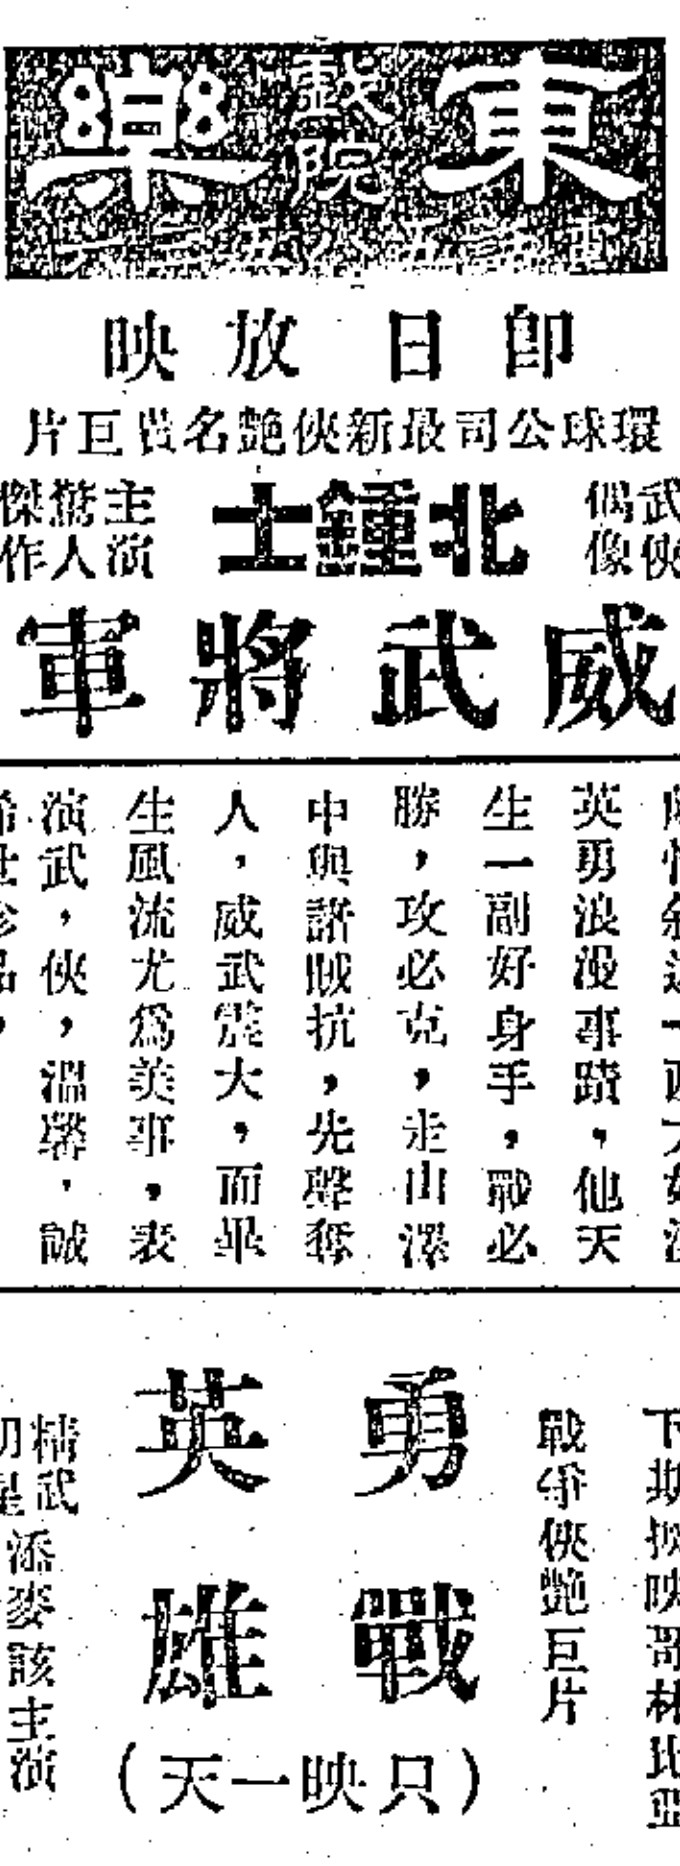 東樂
戲院
電話五八五三六
即日放映
環球公司最新俠艷名貴巨片
武俠
偶像
北鍾士
主演
驚人
傑作
威武將軍
英勇浪漫事蹟，他天
生一副好身手，戰必
勝，攻必克，走山澤
中與諸賊抗，先聲奪
人，威武震大，而畢
生風流尤為美事，表
演武，俠，溫馨，誠
希世珍品，
下期放映哥林比亞
戰爭俠艷巨片
勇戰
英雄
（只映一天）
精武
明星
添麥該主演